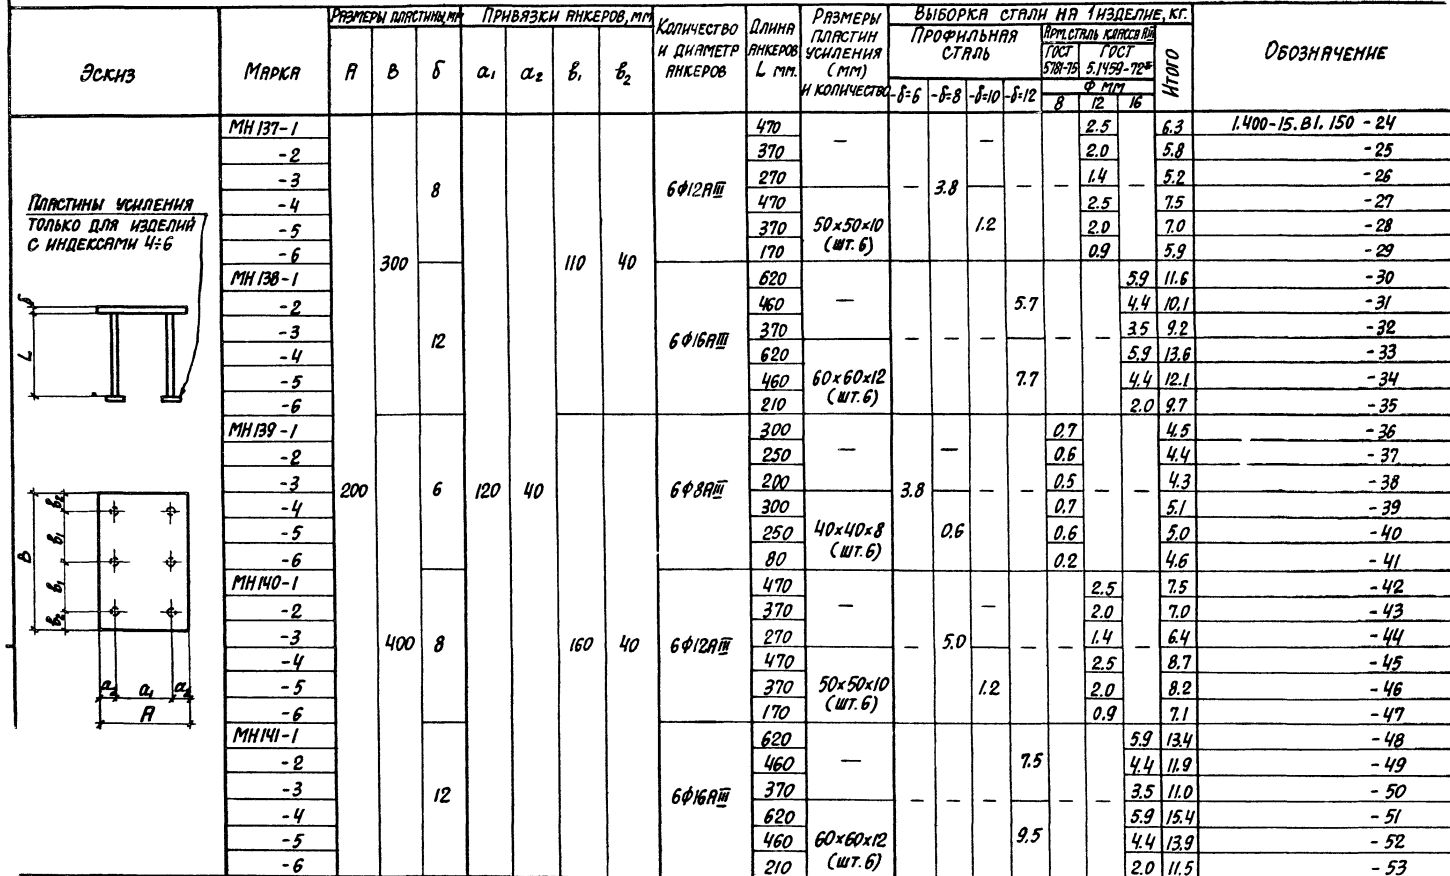 Эскиз
Марка
Размеры пластины, мм
А В δ
Привязки анкеров, мм
а₁ а₂ в₁ в₂
Количество и диаметр анкеров
Длина анкеров L мм.
Размеры пластин усиления (мм) и количество
Выборка стали на 1 изделие, кг.
Профильная сталь
-δ=6 -δ=8 -δ=10 -δ=12
Арм. сталь класса АIII
ГОСТ 5781-75 ГОСТ 5.1459-72*
Ф мм
8 12 16
Итого
Обозначение
Пластины усиления
только для изделий
с индексами 4÷6
δ
L
В
в₂
в₁
в₁
в₂
а₂ а₁ а₂
А
200 120 40
300 110 40
400 160 40
МН137-1 8 6Ф12АIII 470 — — 3.8 — — — 2.5 — 6.3 1.400-15.В1.150 -24
-2 370 2.0 5.8 -25
-3 270 1.4 5.2 -26
-4 470 50×50×10 (шт.6) 1.2 2.5 7.5 -27
-5 370 2.0 7.0 -28
-6 170 0.9 5.9 -29
МН138-1 12 6Ф16АIII 620 — — — — 5.7 — — 5.9 11.6 -30
-2 460 4.4 10.1 -31
-3 370 3.5 9.2 -32
-4 620 60×60×12 (шт.6) 7.7 5.9 13.6 -33
-5 460 4.4 12.1 -34
-6 210 2.0 9.7 -35
МН139-1 6 6Ф8АIII 300 — 3.8 — — — 0.7 — — 4.5 -36
-2 250 0.6 4.4 -37
-3 200 0.5 4.3 -38
-4 300 40×40×8 (шт.6) 0.6 0.7 5.1 -39
-5 250 0.6 5.0 -40
-6 80 0.2 4.6 -41
МН140-1 8 6Ф12АIII 470 — — 5.0 — — — 2.5 — 7.5 -42
-2 370 2.0 7.0 -43
-3 270 1.4 6.4 -44
-4 470 50×50×10 (шт.6) 1.2 2.5 8.7 -45
-5 370 2.0 8.2 -46
-6 170 0.9 7.1 -47
МН141-1 12 6Ф16АIII 620 — — — — 7.5 — — 5.9 13.4 -48
-2 460 4.4 11.9 -49
-3 370 3.5 11.0 -50
-4 620 60×60×12 (шт.6) 9.5 5.9 15.4 -51
-5 460 4.4 13.9 -52
-6 210 2.0 11.5 -53